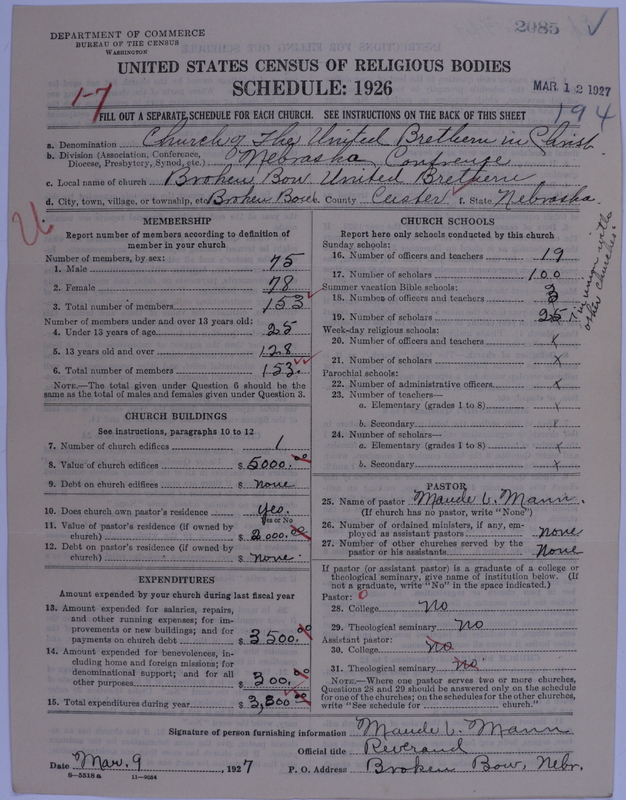 DEPARTMENT OF COMMERCE
BUREAU OF THE CENSUS
WASHINGTON
2085
UNITED STATES CENSUS OF RELIGIOUS BODIES
SCHEDULE: 1926
MAR 12 1927
1-7
194
FILL OUT A SEPARATE SCHEDULE FOR EACH CHURCH. SEE INSTRUCTIONS ON THE BACK OF THIS SHEET
a. Denomination Church of The United Brethern in Christ
b. Division (Association, Conference, Diocese, Presbytery, Synod, etc.) Nebraska Confrence
c. Local name of church Broken Bow United Brethern
d. City, town, village, or township, etc Broken Bow e. County Custer f. State Nebraska.
MEMBERSHIP
Report number of members according to definition of
member in your church
Number of members, by sex:
1. Male 75
2. Female 78
3. Total number of members 153
Number of members under and over 13 years old:
4. Under 13 years of age 25
5. 13 years old and over 128
6. Total number of members 153.
NOTE.—The total given under Question 6 should be the
same as the total of males and females given under Question 3.
CHURCH BUILDINGS
See instructions, paragraphs 10 to 12
7. Number of church edifices 1
8. Value of church edifices $ 5000.00
9. Debt on church edifices $ none
10. Does church own pastor's residence yes.
Yes or No
11. Value of pastor's residence (if owned by
church) $ 2000.00
12. Debt on pastor's residence (if owned by
church) $ none.
EXPENDITURES
Amount expended by your church during last fiscal year
13. Amount expended for salaries, repairs,
and other running expenses; for im-
provements or new buildings; and for
payments on church debt $ 3500.00
14. Amount expended for benevolences, in-
cluding home and foreign missions; for
denominational support; and for all
other purposes $ 300.00
15. Total expenditures during year $ 3,800.00
CHURCH SCHOOLS
Report here only schools conducted by this church
Sunday schools:
16. Number of officers and teachers 19
17. Number of scholars 100
Summer vacation Bible schools:
18. Number of officers and teachers 3
19. Number of scholars 25
in union with
other churches.
Week-day religious schools:
20. Number of officers and teachers x
21. Number of scholars x
Parochial schools:
22. Number of administrative officers x
23. Number of teachers—
a. Elementary (grades 1 to 8) x
b. Secondary x
24. Number of scholars—
a. Elementary (grades 1 to 8) x
b. Secondary x
PASTOR
25. Name of pastor Maude L. Mann.
(If church has no pastor, write "None")
26. Number of ordained ministers, if any, em-
ployed as assistant pastors none
27. Number of other churches served by the
pastor or his assistants None
If pastor (or assistant pastor) is a graduate of a college or
theological seminary, give name of institution below. (If
not a graduate, write "No" in the space indicated.)
Pastor: 0
28. College no
29. Theological seminary no
Assistant pastor:
30. College no
31. Theological seminary no.
NOTE.—Where one pastor serves two or more churches,
Questions 28 and 29 should be answered only on the schedule
for one of the churches; on the schedules for the other churches,
write "See schedule for church."
Signature of person furnishing information Maude L. Mann
Official title Reverand
Date Mar. 9, 1927 P. O. Address Broken Bow, Nebr.
S-5518a 11-9584